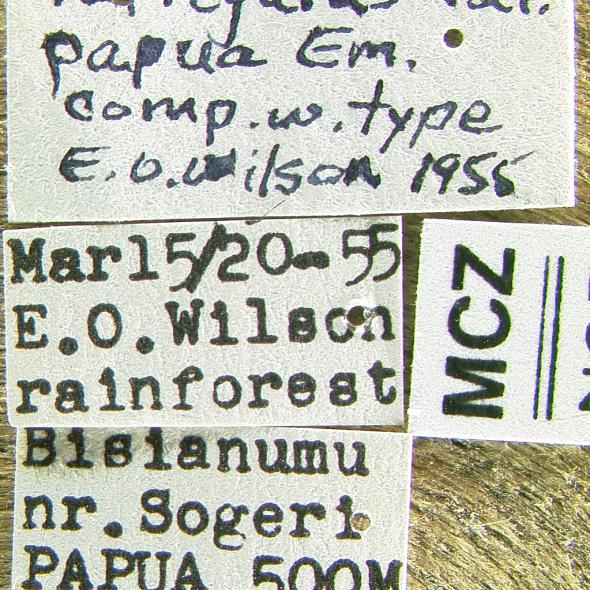 papua Em.
comp. w. type
E.O. Wilson 1955
Mar15/20-55
E.O.Wilson
rainforest
Bisianumu
nr.Sogeri
PAPUA 500M
MCZ